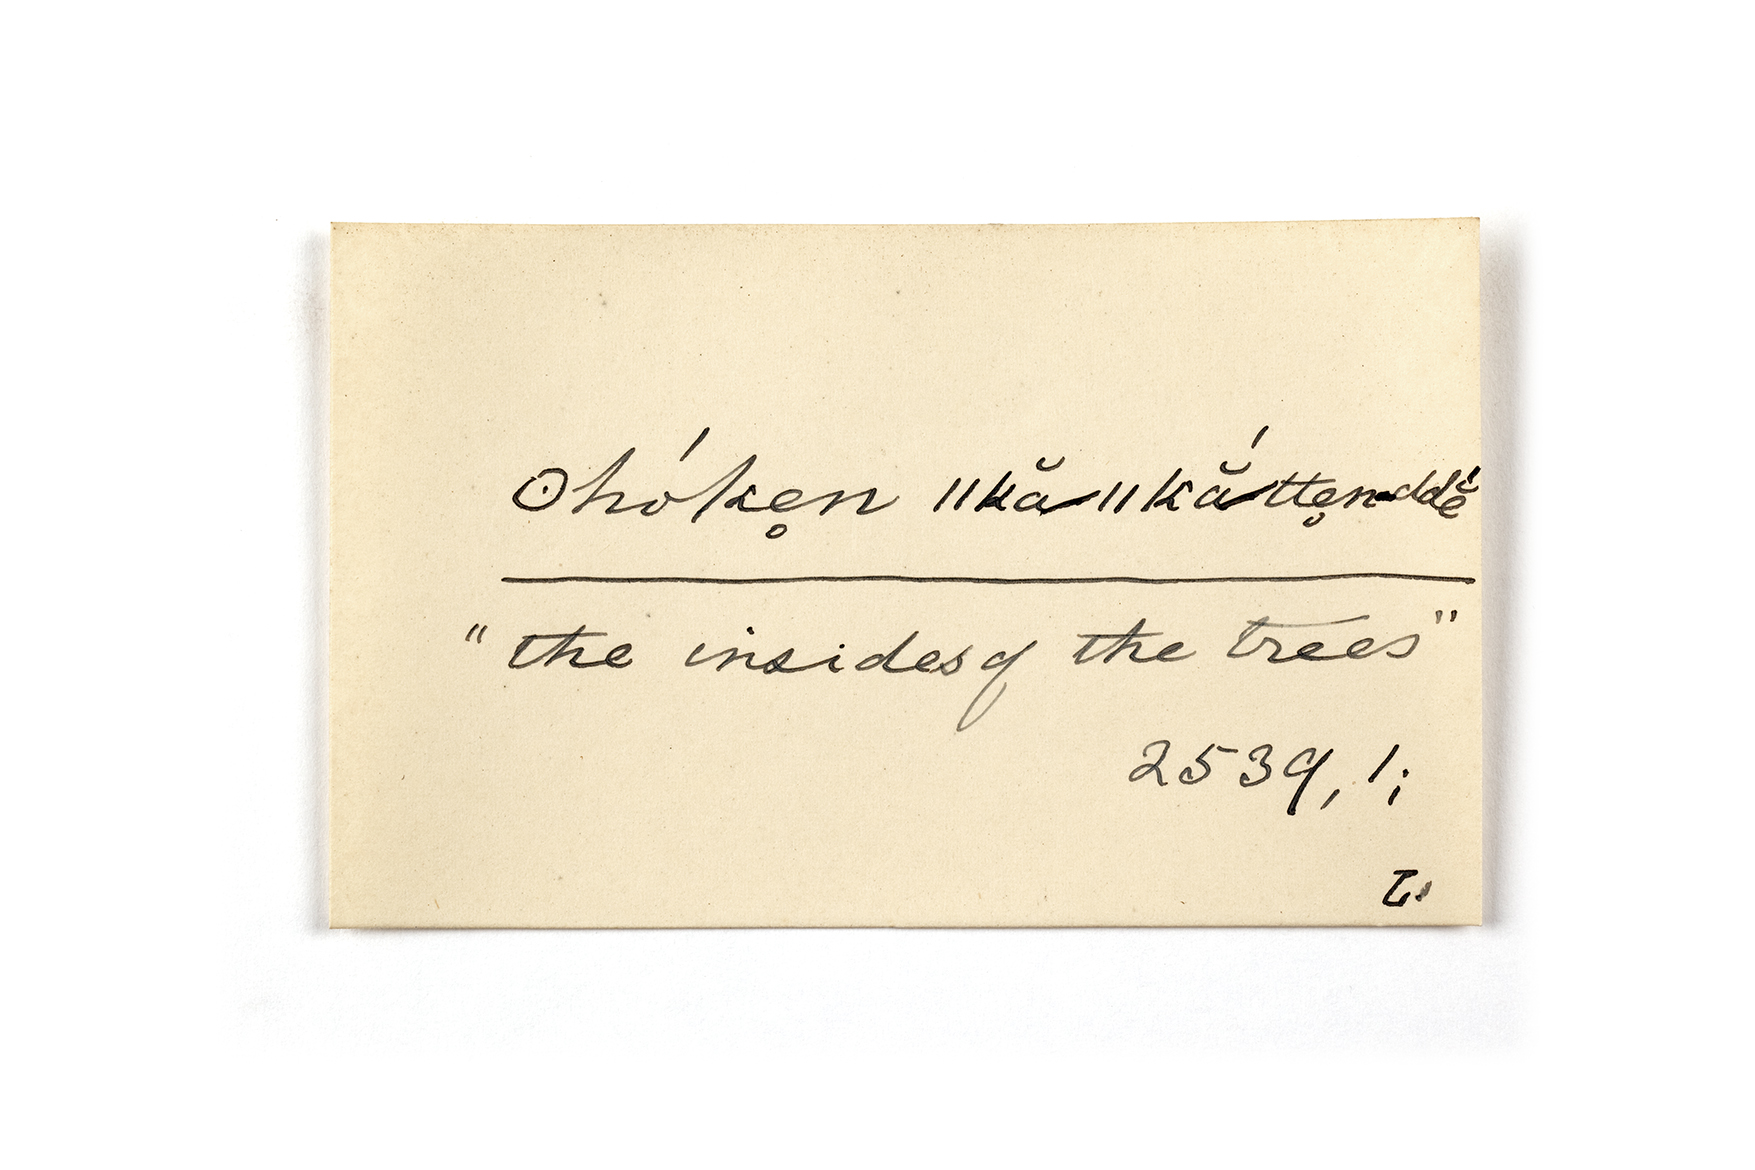 ʘhó̗ken̥ ǁkă-ǁkắtten̥-ddĕ́
"the insides of the trees"
2539, 1;
L.